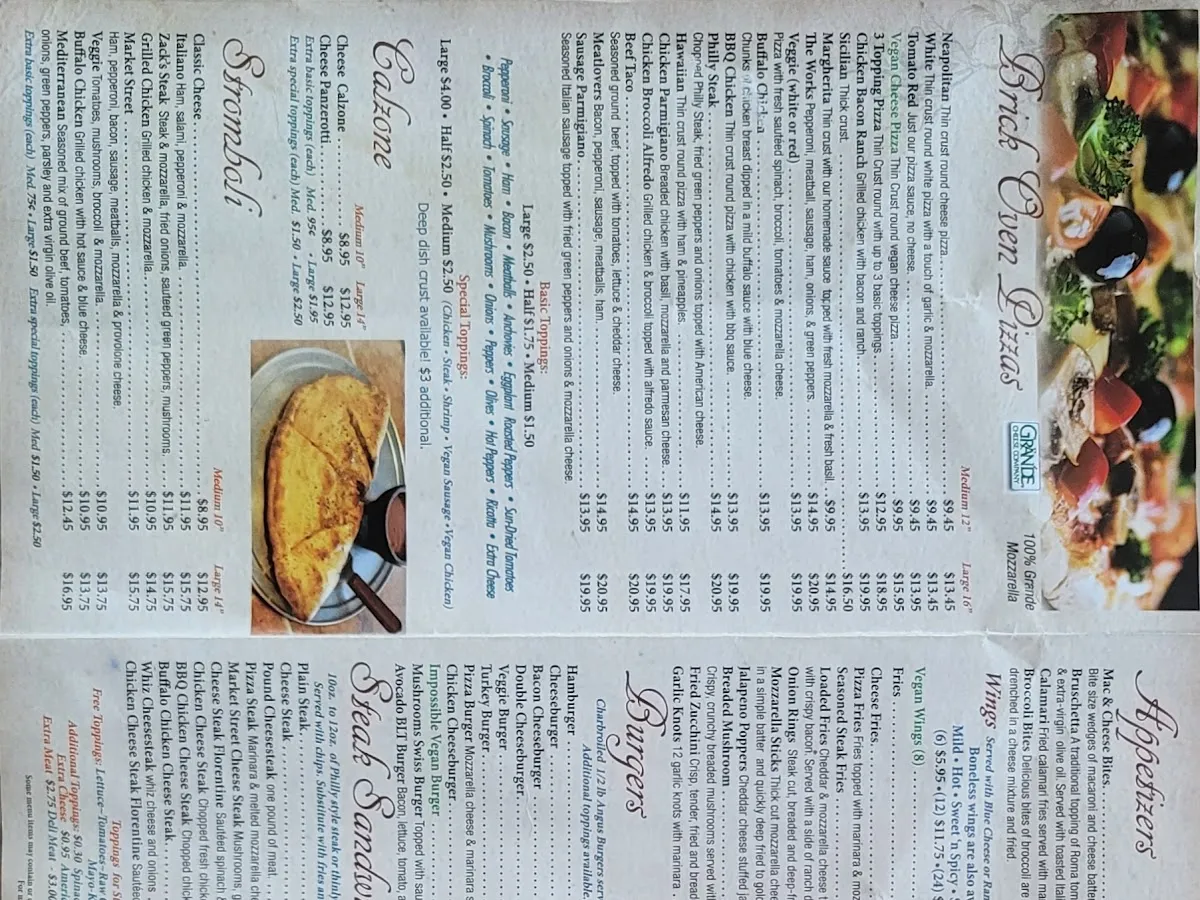 Brick Oven Pizzas
GRANDE
CHEESE COMPANY
100% Grande
Mozzarella
Medium 12" Large 16"
Neapolitan Thin crust round cheese pizza. $9.45 $13.45
White Thin crust round white pizza with a touch of garlic & mozzarella. $9.45 $13.45
Tomato Red Just our pizza sauce, no cheese. $9.45 $13.95
Vegan Cheese Pizza Thin Crust round vegan cheese pizza. $9.95 $15.95
3 Topping Pizza Thin Crust round with up to 3 basic toppings. $12.95 $18.95
Chicken Bacon Ranch Grilled chicken with bacon and ranch. $13.95 $19.95
Sicilian Thick crust. $16.50
Margherita Thin crust with our homemade sauce topped with fresh mozzarella & fresh basil. $9.95 $14.95
The Works Pepperoni, meatball, sausage, ham, onions, & green peppers. $14.95 $20.95
Veggie (white or red) $13.95 $19.95
Pizza with fresh sautéed spinach, broccoli, tomatoes & mozzarella cheese.
Buffalo Chicken $13.95 $19.95
Chunks of chicken breast dipped in a mild buffalo sauce with blue cheese.
BBQ Chicken Thin crust round pizza with chicken with bbq sauce. $13.95 $19.95
Philly Steak $14.95 $20.95
Chopped Philly Steak, fried green peppers and onions topped with American cheese.
Hawaiian Thin crust round pizza with ham & pineapples. $11.95 $17.95
Chicken Parmigiano Breaded chicken with basil, mozzarella and parmesan cheese. $13.95 $19.95
Chicken Broccoli Alfredo Grilled chicken & broccoli topped with alfredo sauce. $13.95 $19.95
Beef Taco $14.95 $20.95
Seasoned ground beef, topped with tomatoes, lettuce & cheddar cheese.
Meatlovers Bacon, pepperoni, sausage, meatballs, ham. $14.95 $20.95
Sausage Parmigiano $13.95 $19.95
Seasoned Italian sausage topped with fried green peppers and onions & mozzarella cheese.
Basic Toppings:
Large $2.50 • Half $1.75 • Medium $1.50
Pepperoni • Sausage • Ham • Bacon • Meatballs • Anchovies • Eggplant Roasted Peppers • Sun-Dried Tomatoes
• Broccoli • Spinach • Tomatoes • Mushrooms • Onions • Peppers • Olives • Hot Peppers • Ricotta • Extra Cheese
Special Toppings:
Large $4.00 • Half $2.50 • Medium $2.50 (Chicken • Steak • Shrimp • Vegan Sausage • Vegan Chicken)
Deep dish crust available! $3 additional.
Calzone
Medium 10" Large 14"
Cheese Calzone $8.95 $12.95
Cheese Panzerotti $8.95 $12.95
Extra basic toppings (each) Med. 95¢ • Large $1.95
Extra special toppings (each) Med. $1.50 • Large $2.50
Stromboli
Medium 10" Large 14"
Classic Cheese $8.95 $12.95
Italiano Ham, salami, pepperoni & mozzarella. $11.95 $15.75
Zack's Steak Steak & mozzarella, fried onions, sauteed green peppers, mushrooms. $11.95 $15.75
Grilled Chicken Grilled chicken & mozzarella. $10.95 $14.75
Market Street $11.95 $15.75
Ham, pepperoni, bacon, sausage, meatballs, mozzarella & provolone cheese.
Veggie Tomatoes, mushrooms, broccoli & mozzarella. $10.95 $13.75
Buffalo Chicken Grilled chicken with hot sauce & blue cheese. $10.95 $13.75
Mediterranean Seasoned mix of ground beef, tomatoes, $12.45 $16.95
onions, green peppers, parsley and extra virgin olive oil.
Extra basic toppings (each) Med. 75¢ • Large $1.50 Extra special toppings (each) Med $1.50 • Large $2.50
Appetizers
Mac & Cheese Bites
Bite size wedges of macaroni and cheese batter
Bruschetta A traditional topping of Roma tom
& extra-virgin olive oil. Served with toasted Ital
Calamari Fried calamari fries served with ma
Broccoli Bites Delicious bites of broccoli are
drenched in a cheese mixture and fried.
Wings Served with Blue Cheese or Ran
Boneless wings are also av
Mild • Hot • Sweet 'n Spicy •
(6) $5.95 • (12) $11.75 • (24) $
Vegan Wings (8)
Fries
Cheese Fries
Pizza Fries Fries topped with marinara & moz
Seasoned Steak Fries
Loaded Fries Cheddar & mozzarella cheese t
with crispy bacon. Served with a side of ranch d
Onion Rings Steak cut, breaded and deep-f
Mozzarella Sticks Thick cut mozzarella chee
in a simple batter and quickly deep fried to gol
Jalapeno Poppers Cheddar cheese stuffed ja
Breaded Mushroom
Crispy, crunchy breaded mushrooms served wit
Fried Zucchini Crisp, tender, fried and bread
Garlic Knots 12 garlic knots with marinara
Burgers
Charbroiled 1/2 lb Angus Burgers serv
Additional toppings available.
Hamburger
Cheeseburger
Bacon Cheeseburger
Double Cheeseburger
Veggie Burger
Turkey Burger
Pizza Burger Mozzarella cheese & marinara s
Chicken Cheeseburger
Impossible Vegan Burger
Mushroom Swiss Burger Topped with sau
Avocado BLT Burger Bacon, lettuce, tomato, a
Steak Sandw
10oz. to 12oz. of Philly style steak or thinly
Served with chips. Substitute with fries an
Plain Steak
Cheese Steak
Pound Cheesesteak one pound of meat
Pizza Steak Marinara & melted mozzarella che
Market Street Cheese Steak Mushrooms, g
Cheese Steak Florentine Sauteed spinach &
Chicken Cheese Steak Chopped fresh chick
BBQ Chicken Cheese Steak Chopped chick
Buffalo Chicken Cheese Steak
Whiz Cheesesteak whiz cheese and onions
Chicken Cheese Steak Florentine Sauteé
Toppings for St
Free Topping: Lettuce~Tomatoes~Raw
Mayo~K
Additional Toppings: $0.30 Spinac
Extra Cheese $0.95 Americ
Extra Meat $2.75 Deli Meat - $3.00
Some menu items may contain